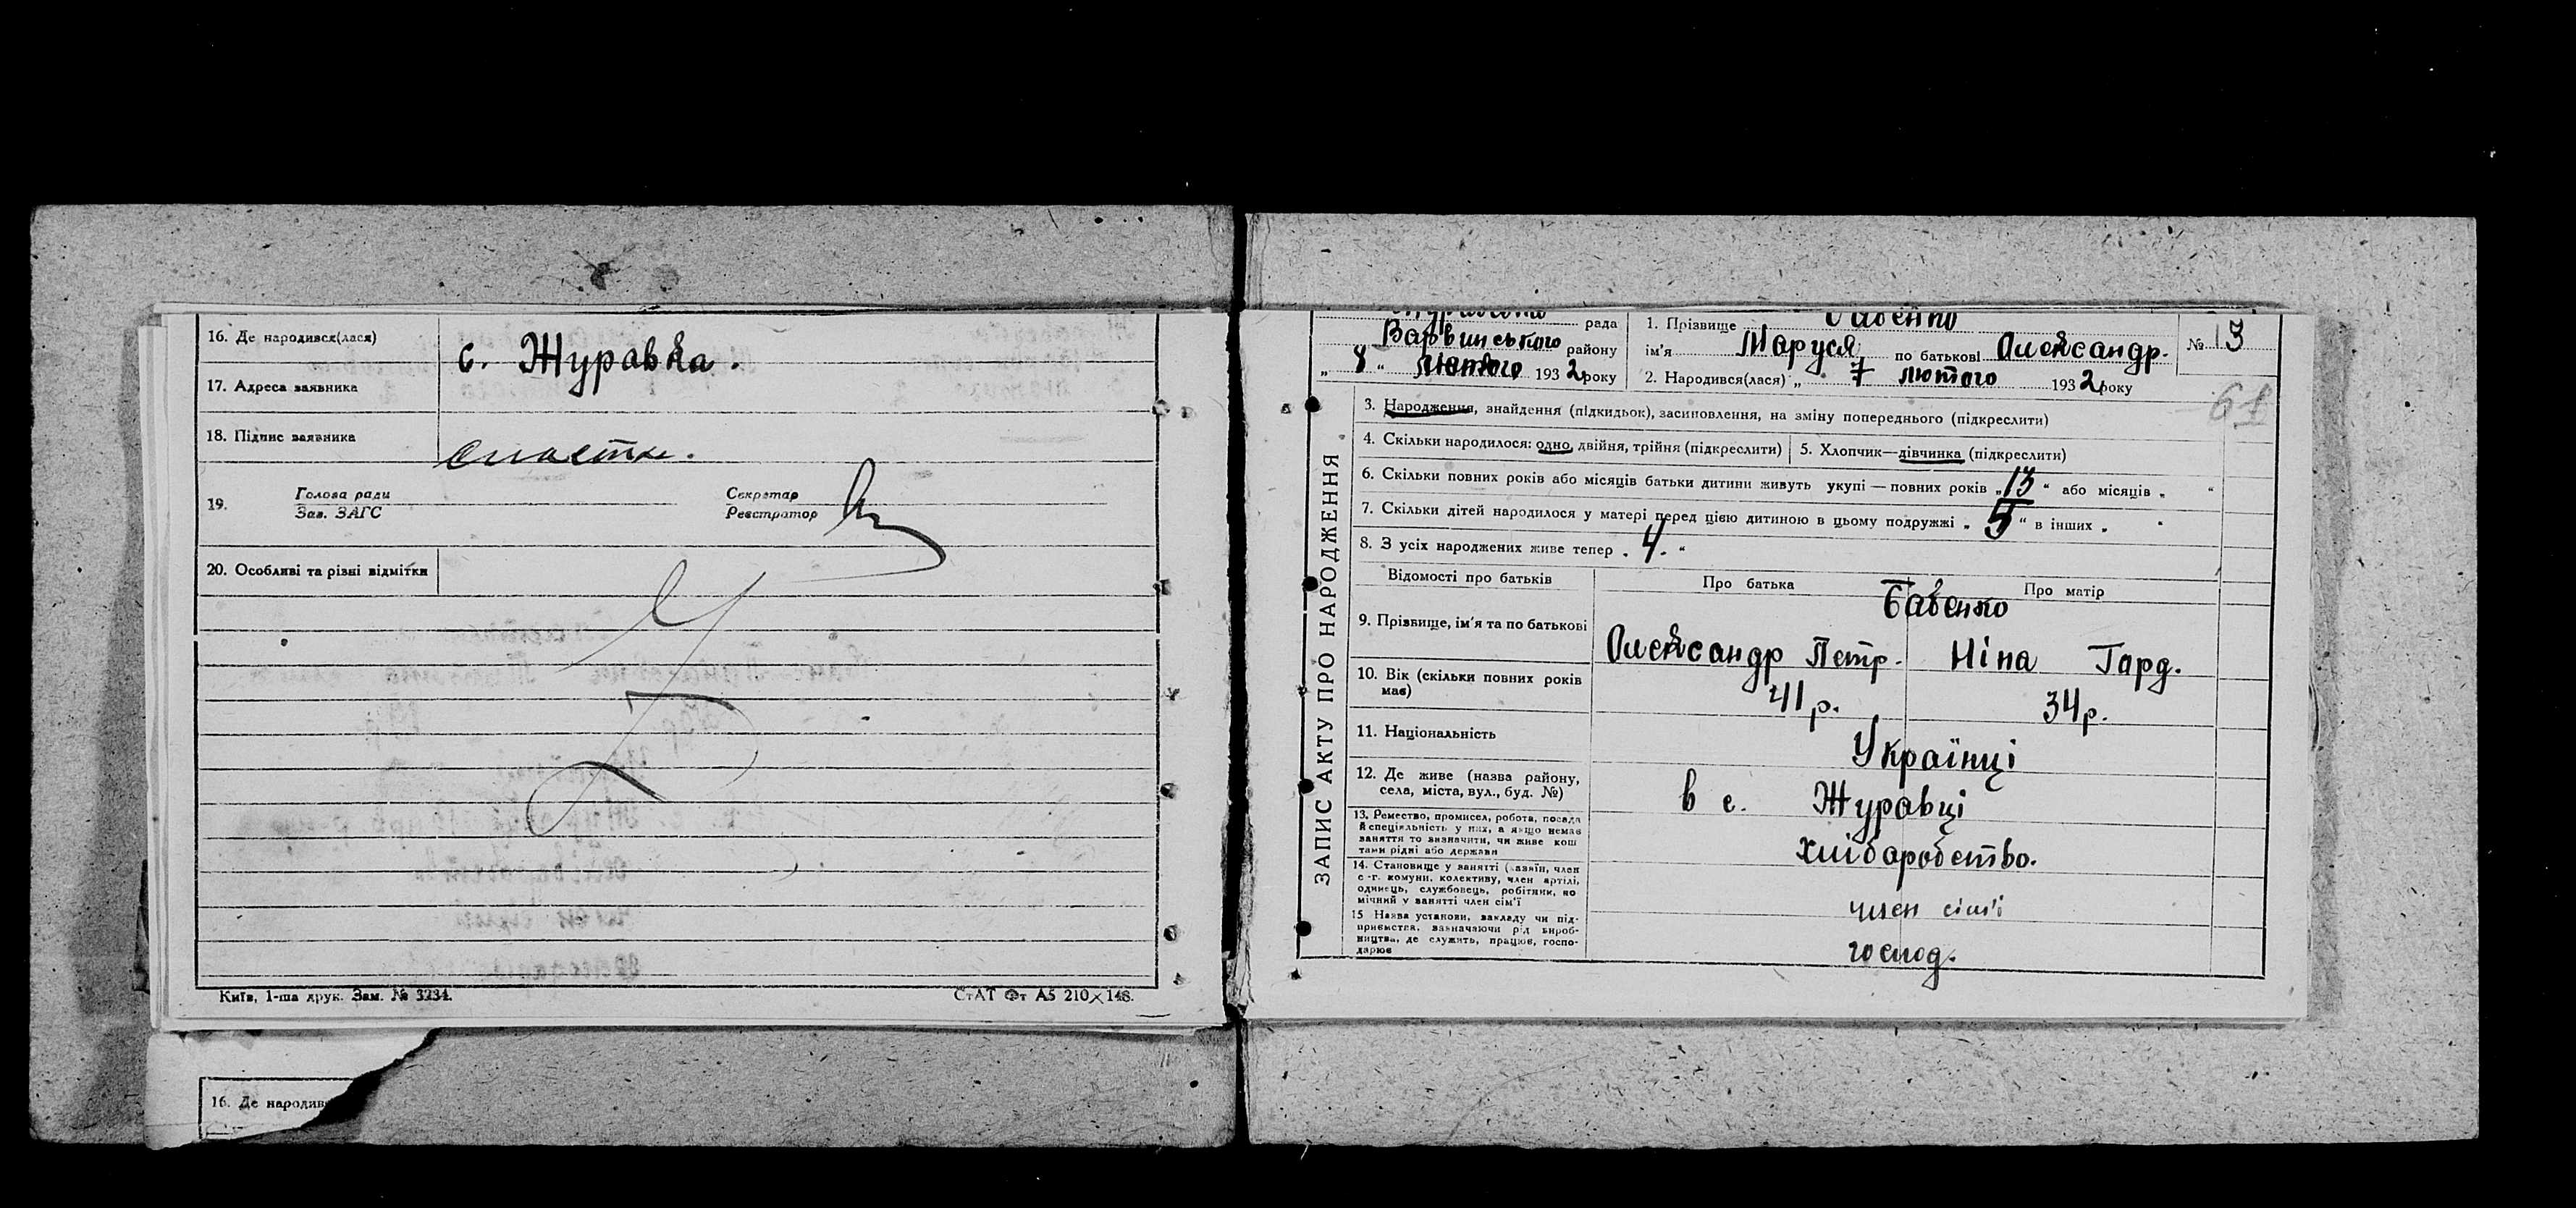 16. Де народився(лася)
с. Журавка.
17. Адреса заявника
18. Підпис заявника
19.
Голова ради
Зав. ЗАГС
Секретар
Реєстратор
20. Особливі та різні відмітки
Київ, 1-ша друк. Зам. № 3234.
СтАТ Фт А5 210×148.
16. Де народив
ЗАПИС АКТУ ПРО НАРОДЖЕННЯ
рада
Варвинського району
„ 8 " лютого 1932 року
1. Прізвище
ім'я Маруся по батькові Олександр.
2. Народився(лася) „ 7 лютого 1932 року
№ 13
61
3. Народження, знайдення (підкидьок), засиновлення, на зміну попереднього (підкреслити)
4. Скільки народилося: одно, двійня, трійня (підкреслити)
5. Хлопчик—дівчинка (підкреслити)
6. Скільки повних років або місяців батьки дитини живуть укупі — повних років „13" або місяців „ "
7. Скільки дітей народилося у матері перед цією дитиною в цьому подружжі „ 5 " в інших „ "
8. З усіх народжених живе тепер „ 4. "
Відомості про батьків
Про батька
Про матір
9. Прізвище, ім'я та по батькові
Бабенко
Олександр Петр.
Ніна Горд.
10. Вік (скільки повних років
має)
41 р.
34 р.
11. Національність
Українці
12. Де живе (назва району,
села, міста, вул., буд. №)
в с. Журавці
13. Ремество, промисел, робота, посада
й спеціяльність у них, а якщо немає
заняття то визначити, чи живе кош
тами рідні або держави
хліборобство.
14. Становище у занятті (хазяїн, член
с-г. комуни, колективу, член артілі,
одинець, службовець, робітник, по
мічний у занятті член сім'ї
член сім'ї
15 Назва установи, закладу чи під-
приємства, зазначаючи рід вироб-
ництва, де служить, працює, госпо-
дарює
господ.